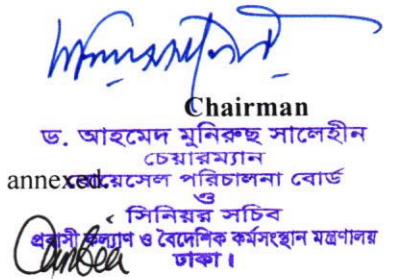 Chairman
ড. আহমেদ মুনিরুছ সালেহীন
চেয়ারম্যান
annexed.
বোয়েসেল পরিচালনা বোর্ড
ও
সিনিয়র সচিব
প্রবাসী কল্যাণ ও বৈদেশিক কর্মসংস্থান মন্ত্রণালয়
ঢাকা।